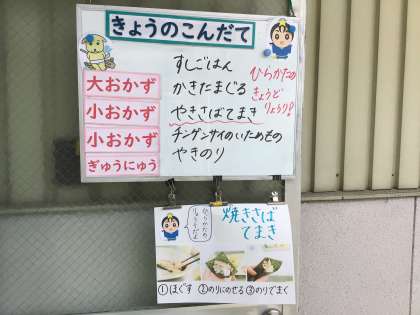 きょうのこんだて
すしごはん
大おかず かきたまじる
小おかず やきさばてまき
小おかず チンゲンサイのいためもの
ぎゅうにゅう やきのり
ひらかたの
きょうど
りょうり!
焼きさば
てまき
ひらかたの
①ほぐす ②のりにのせる ③のりでまく